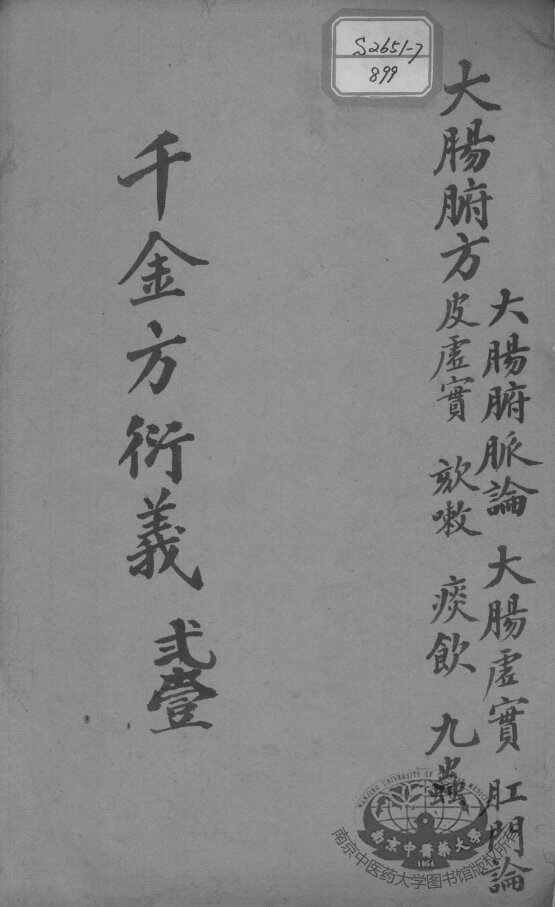 S2651-7
899
大腸腑方
大腸腑脈論 大腸虛實 肛門論
皮虛實 欬嗽 痰飲 九蟲
千金方衍義 弍壹
NANJING UNIVERSITY OF
MEDICINE
南京中醫藥大學
1954
南京中医药大学图书馆版权所有